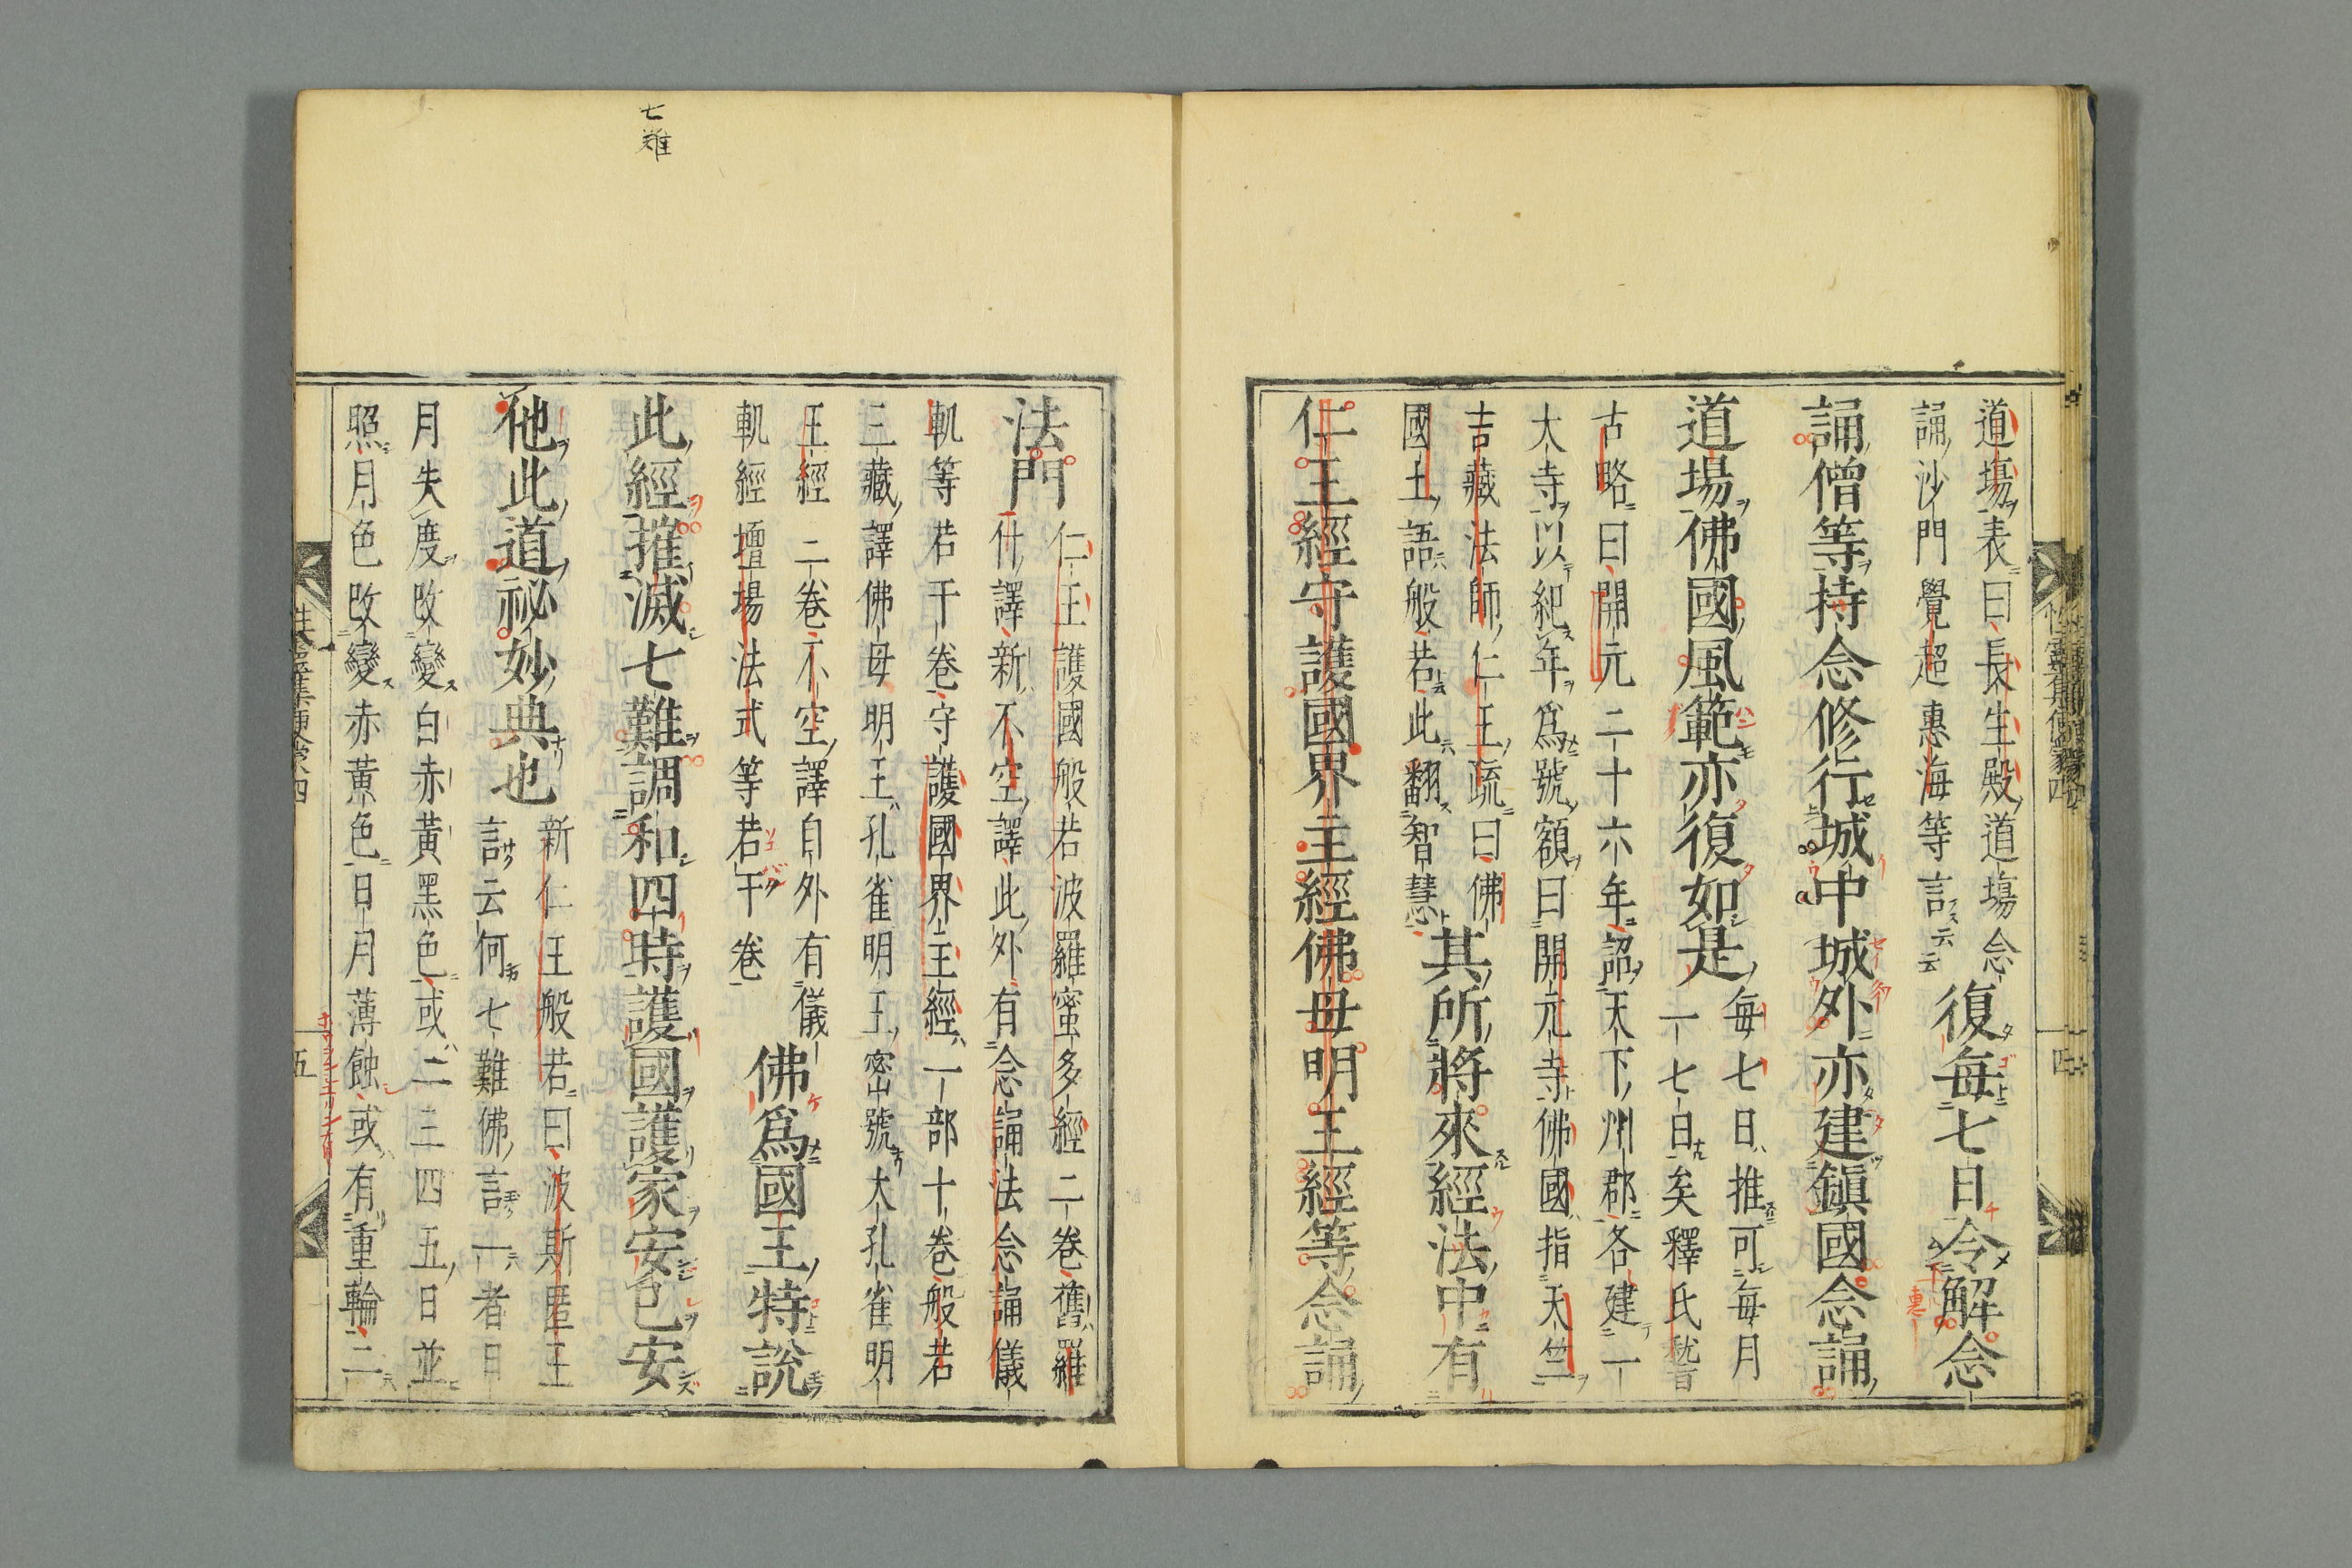 道場表曰長生殿道場念
誦沙門覺超惠海等言云云
復每七日令解念
誦僧等持念修行城中城外亦建鎮國念誦
道場佛國風範亦復如是
每七日推可每月
一七日矣釋氏嵆
古略曰開元二十六年詔天下州郡各建一
大寺以紀年爲號額曰開元寺佛國指天竺
吉藏法師仁王疏曰佛
國土語般若此翻智慧
其所將來經法中有
仁王經守護國界主經佛母明王經等念誦
法門
仁王護國般若波羅蜜多經二卷舊羅
什譯新不空譯此外有念誦法念誦儀
軌等若干卷守護國界主經一部十卷般若
三藏譯佛母明王孔雀明王密號大孔雀明
王經二卷不空譯自外有儀
軌經壇場法式等若干卷
佛爲國王特說
此經摧滅七難調和四時護國護家安己安
他此道祕妙典也
新仁王般若曰波斯匿王
言云何七難佛言一者日
月失度改變白赤黃黑色或二三四五日並
照月色改變赤黃色日月薄蝕或有重輪二
七難
四
五